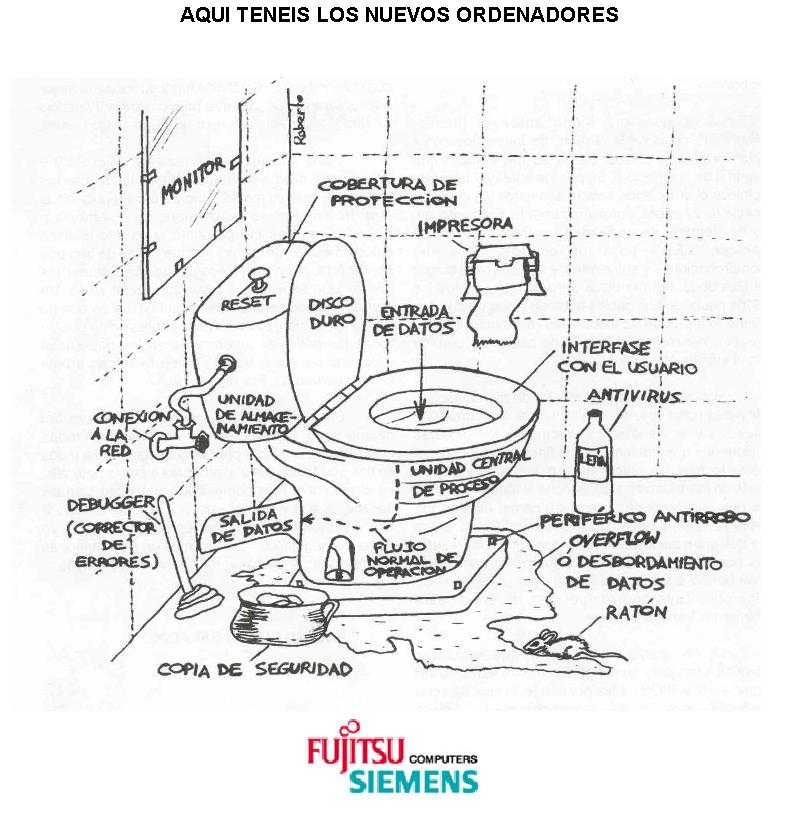 AQUI TENEIS LOS NUEVOS ORDENADORES
Roberto
MONITOR
COBERTURA DE
PROTECCION
IMPRESORA
RESET
DISCO
DURO
ENTRADA
DE DATOS
INTERFASE
CON EL USUARIO
ANTIVIRUS
UNIDAD
DE ALMACE-
NAMIENTO
CONEXION
A LA
RED
LEJIA
UNIDAD CENTRAL
DE PROCESO
DEBUGGER
(CORRECTOR
DE
ERRORES)
SALIDA
DE DATOS
FLUJO
NORMAL DE
OPERACION
PERIFERICO ANTIRROBO
OVERFLOW
O DESBORDAMIENTO
DE DATOS
RATON
COPIA DE SEGURIDAD
FUJITSU COMPUTERS
SIEMENS